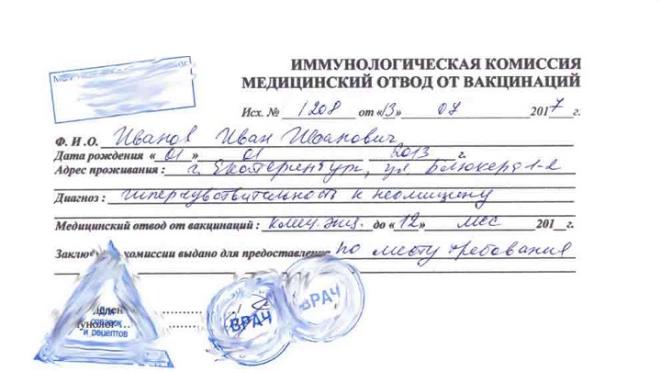 ИММУНОЛОГИЧЕСКАЯ КОМИССИЯ
МЕДИЦИНСКИЙ ОТВОД ОТ ВАКЦИНАЦИЙ
Исх. № 1208 от «13» 07 2017 г.
Ф. И.О. Иванов Иван Иванович
Дата рождения « 01 » 01 2013 г.
Адрес проживания : г. Екатеринбург, ул Блюхера 1-2
Диагноз : гиперчувствительность к неомицину
Медицинский отвод от вакцинаций : до «12» мес 201 г.
Заключение комиссии выдано для предоставление по месту требования
справок
и рецептов
ВРАЧ
ВРАЧ